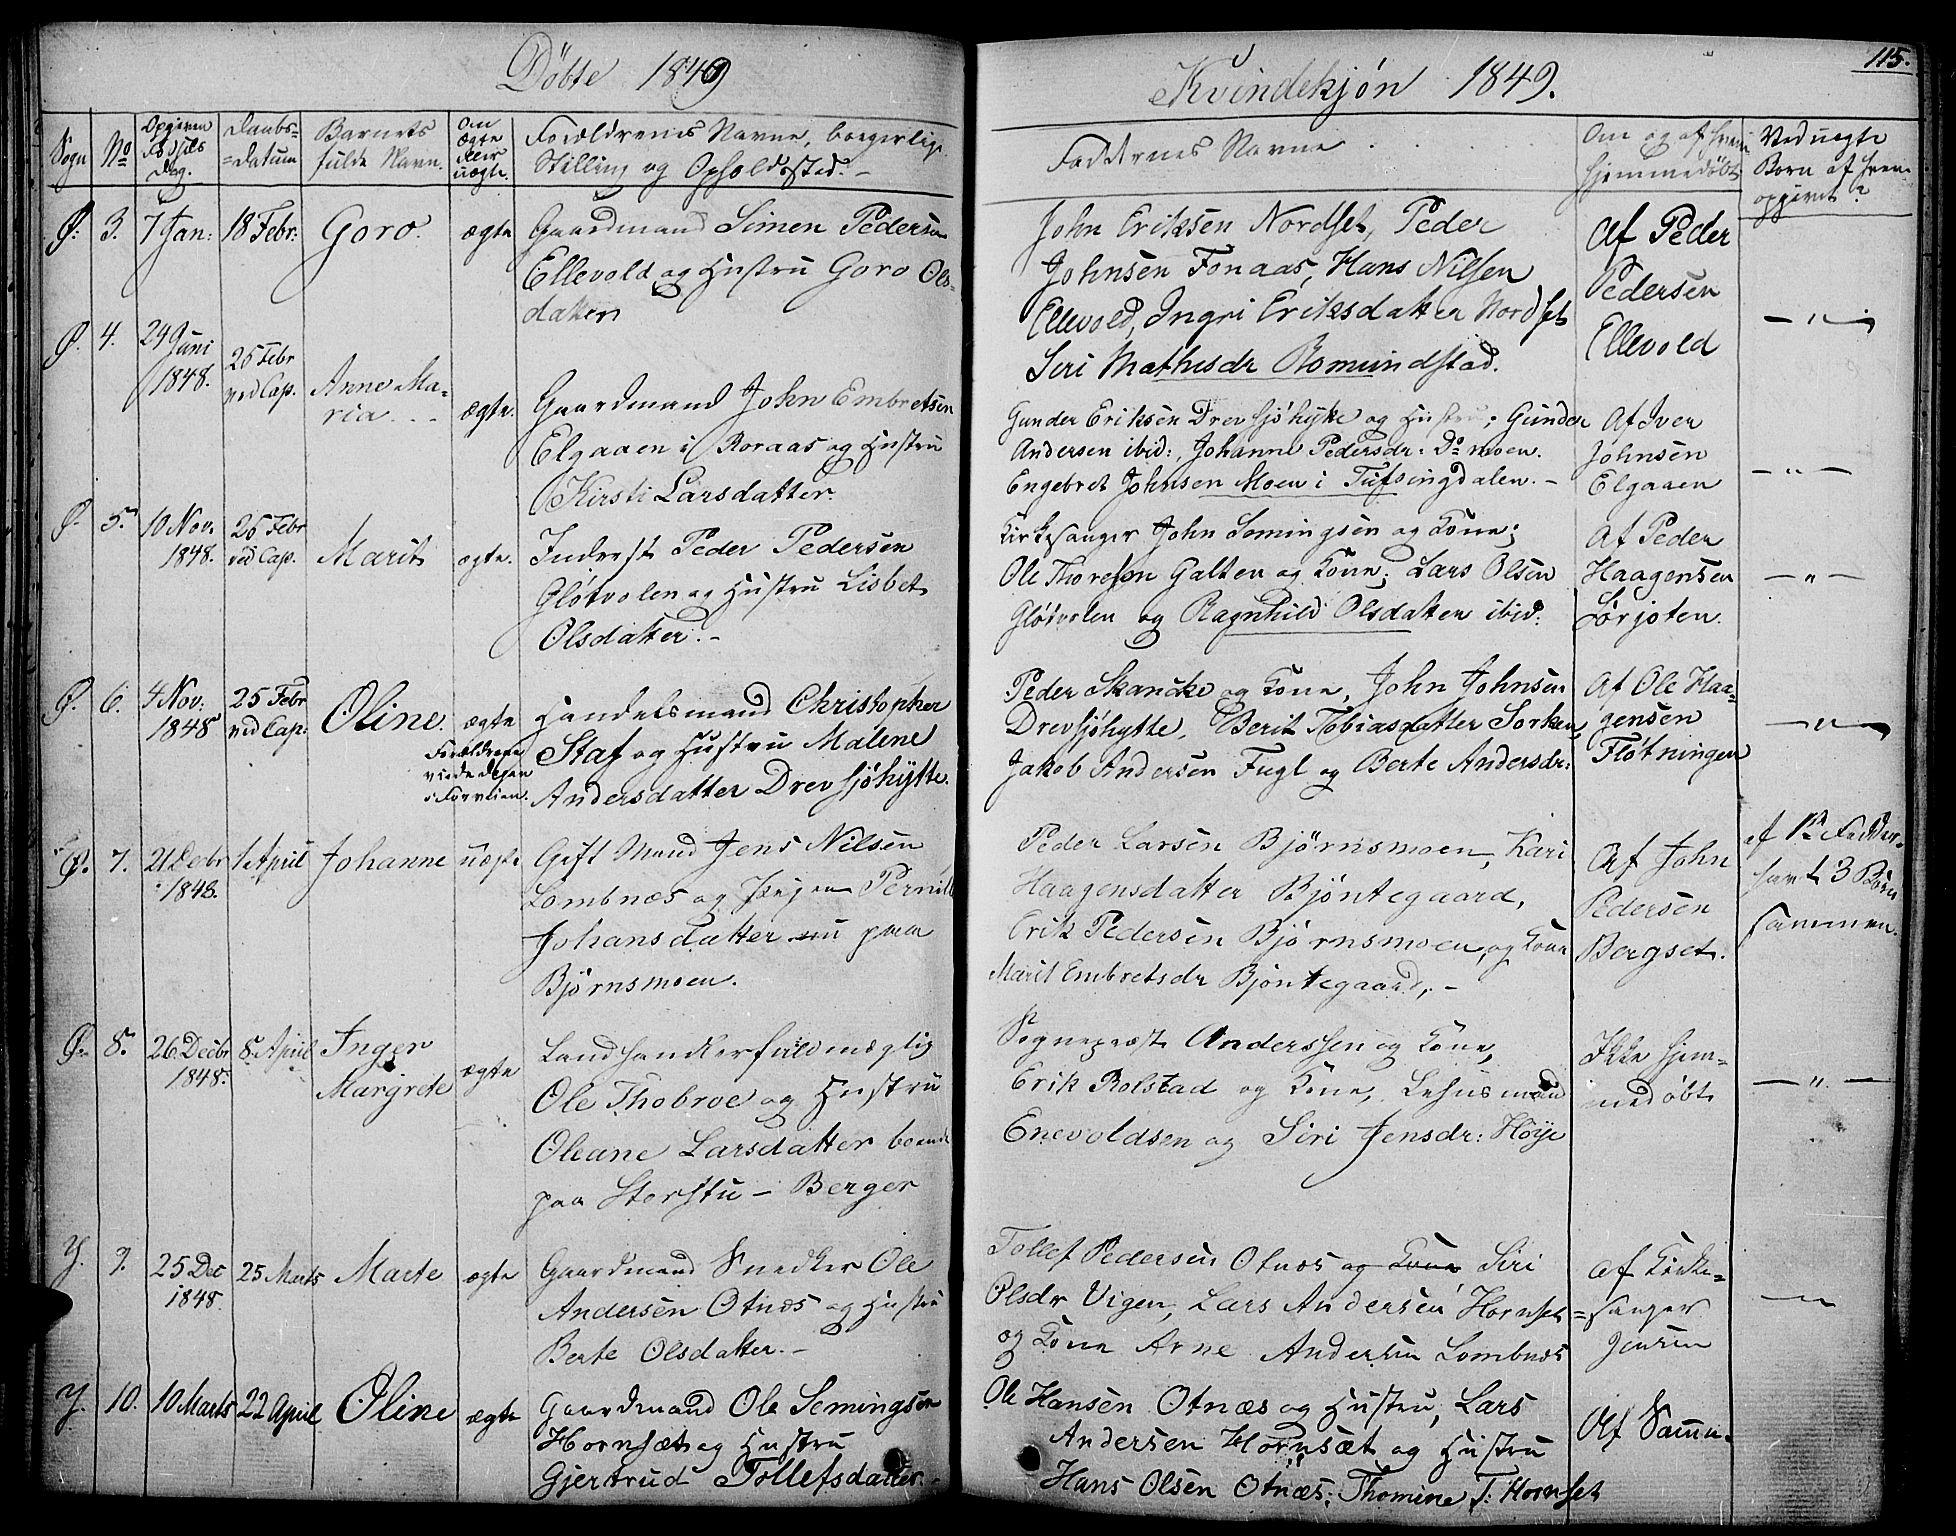 Döbte 1849
Sogn
No
Opgiven Födsels Dag.
Daabs= =datum
Barnets fulde Navn.
Om ægte eller uægte.
Forældrenes Navne, borgerlige
Stilling og Opholdssted. –
Ø: 3. 7 Jan: 18 Febr: Goro. ægte Gaardmand Simen Pedersen
Ellevold og Hustru Goro Ols=
datter
Ø. 4. 24 Juni 1848. 25 Febr ved Cap. Anne Ma=
ria. ægte. Gaardmand John Embretsen
Elgaaen i Roraas og Hustru
Kirsti Larsdatter.
Ø. 5. 10 Nov. 1848. 25 Febr ved Cap. Marit ægte. Inderst Peder Pedersen
Glötvolen og Hustru Lisbet
Olsdatter. –
Ø. 6. 4 Nov: 1848 25 Febr ved Cap: Oline. ægte Handelsmand Christopher
Staf og Hustru Malene
Andersdatter Drevsjöhytte.
Forældrene
Ø. 7. 21 Decbr 1848. 1 April Johanne uægte Gift Mand Jens Nilsen
Lombnæs og Pigen Pernille
Johansdatter nu paa
Björnsmoen.
Ø. 8. 26 Decbr 1848. 8. April Inger
Margrete ægte Landhandlerfuldmægtig
Ole Thobroe og Hustru
Oleane Larsdatter boende
paa Storstu – Berger
Y. 9. 25 Dec 1848 25 Marts Marte ægte Gaardmand Snedker Ole
Andersen Otnæs og Hustru
Berte Olsdatter. –
Y. 10. 10 Marts 22 April Oline ægte Gaardmand Ole Semingsen
Hornsæt og Hustru
Gjertrud Tollefsdatter. –
Kvindekjön 1849.
115.
Faddernes Navne
Om og af hvem
hjemmedöbt
Ved uægte
Börn af hvem
opgivet?
John Eriksen Nordset, Peder
Johnsen Fonaas, Hans Nilsen
Ellevold, Ingri Eriksdatter Nordset
Siri Mathisdr Romundstad.
Af Peder
Pedersen
Ellevold
– " –
Gunder Eriksen Drevsjöhytte og Hustru; Gunder
Andersen ibid:, Johanne Pedersdr: Do moen.
Engebret Johnsen Moen i Tufsingdalen. –
Af Iver
Johnsen
Elgaaen
– " –
Kirkesanger John Semingsen og Kone;
Ole Thoresen Galten og Kone; Lars Olsen
Glötvolen og Ragnhild Olsdatter ibid:
Af Peder
Haagensen
Sörjoten.
– " –
Peder Skancke og Kone, John Johnsen
Drevsjöhytte, Berit Tobiasdatter Sorken,
Jakob Andersen Fugl og Berte Andersdr:
Af Ole Haa=
gensen
Flötningen
– " –
Peder Larsen Björnsmoen, Kari
Haagensdatter Bjöntegaard,
Erik Pedersen Björnsmoen, og Kone
Marit Embretsdr Bjöntegaard, –
Af John
Pedersen
Bergset.
af Fadder.
havt 3 Börn
sammen.
Sognepræst Anderssen og Kone,
Erik Rolstad og Kone, Lehnsmand
Enevoldsen og Siri Jensdr: Höije
Ikke hjem=
medöbt
– " –
Tollef Pedersen Otnæs og Kone Siri
Olsdr Vigen, Lars Andersen Hornset
og Kone Arne Andersen Lombnæs
af Kirke=
=sanger
Jensen
–
Ole Hansen Otnæs og Hustru, Lars
Andersen Hornsæt og Hustru
Hans Olsen Otnæs, Thomine T: Hornset
Af Samm.